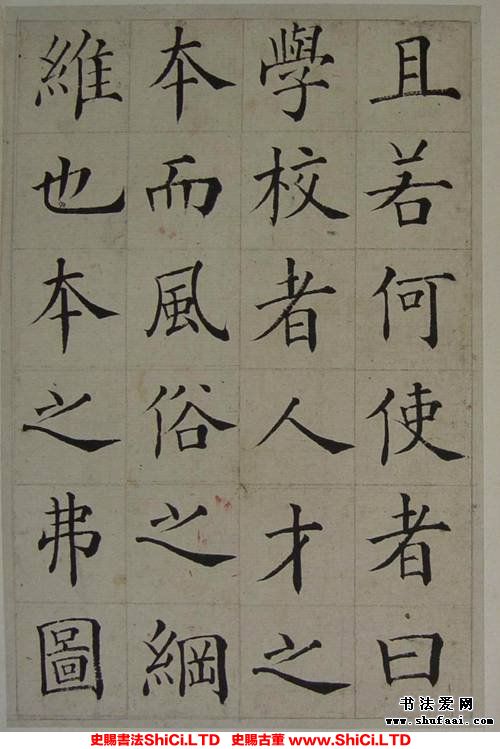 且若何使者曰
學校者人才之
本而風俗之綱
維也本之弗圖
书法爱网
www.shufaai.com
史賜書法ShiCi.LTD 史賜古董 www.ShiCi.LTD